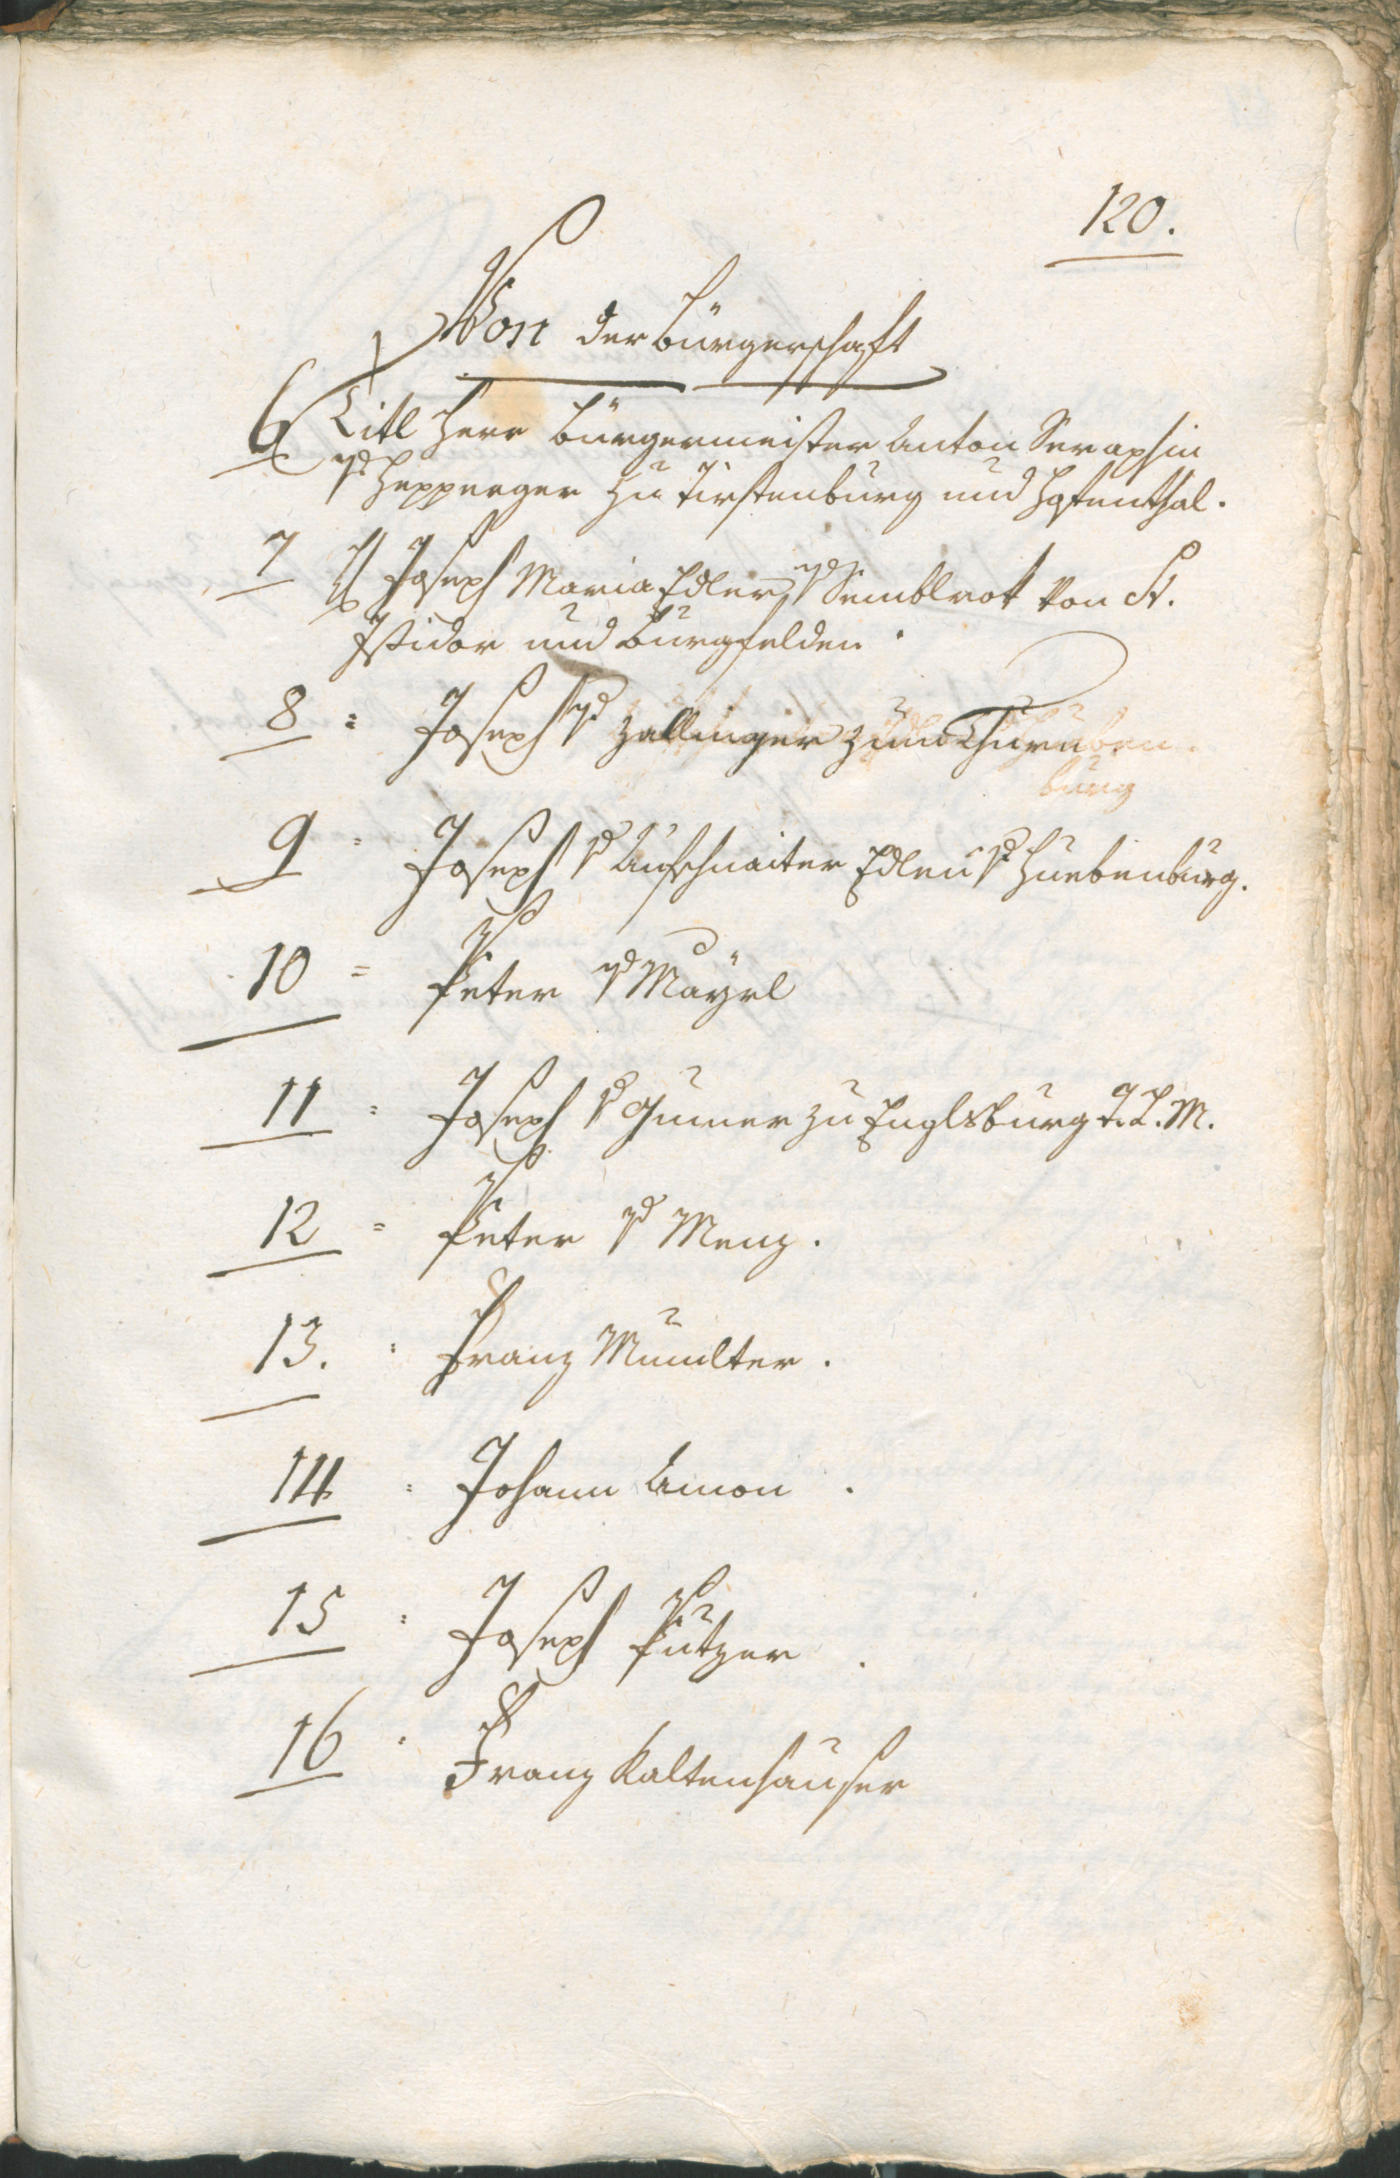 120.
Von der Bürgerschaft
6 Titl Herr Bürgermeister Anton Seraphin
v Hepperger zu Tirstenburg und Hofenthal.
7 Joseph Maria Edler v Semblrok von St.
Isidor und Burgfelden.
8 = Joseph v Zallinger zum Thurn
burg
9 = Joseph v Aufschnaiter Edlen v Huebenburg.
10 = Peter v Mayrl
11 = Joseph v Gumer zu Englsburg T. L. M.
12 = Peter v Menz.
13. : Franz Mumlter.
14 : Johann Amon.
15 : Joseph Putzer.
16 : Franz Kaltenhauser